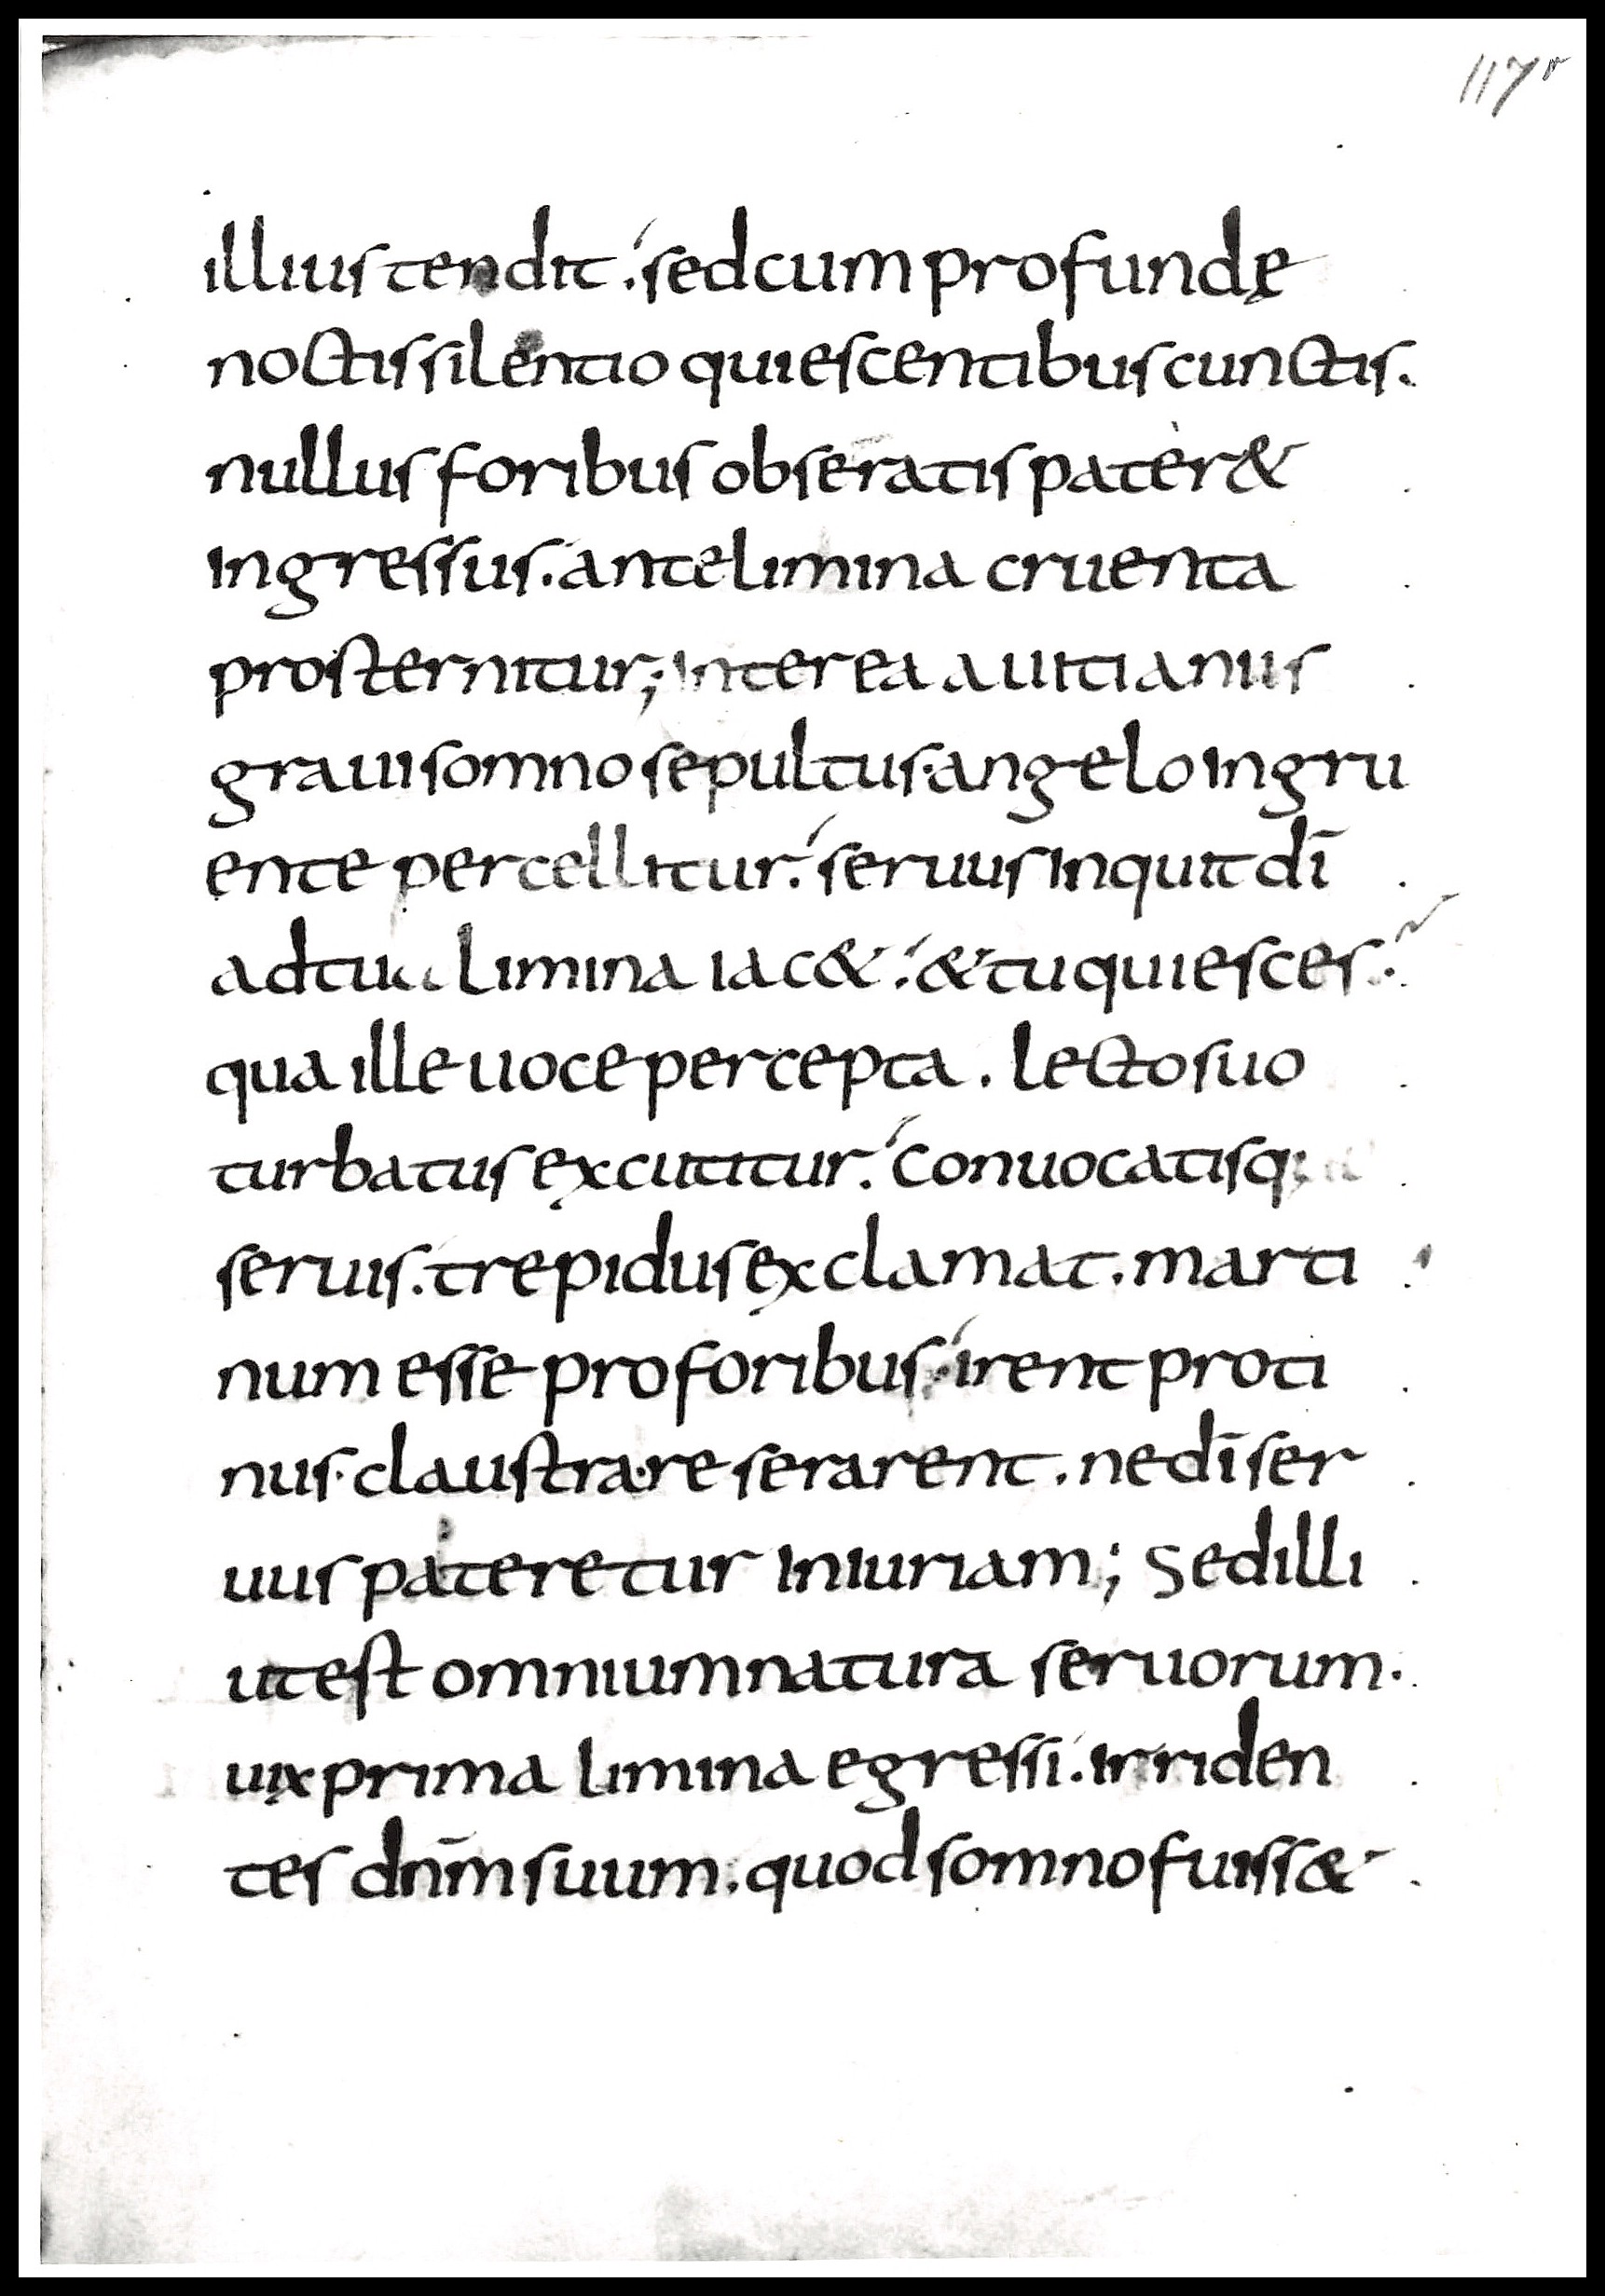 117r
illius tendit. sed cum profundę
noctis silentio quiescentibus cunctis.
nullus foribus obseratis pater &
ingressus. ante limina cruenta
prosternitur; interea auitianus
graui somno sepultus. angelo ingru
ente percellitur. seruus inquit dī
ad tua limina iac&. & tu quiesces.
qua ille uoce percepta. lecto suo
turbatus excutitur. conuocatisq;
seruis. trepidus exclamat. marti
num esse pro foribus. irent proti
nus. claustra. reserarent. ne dī ser
uus pateretur iniuriam; sed illi
ut est omnium natura seruorum.
uix prima limina egressi. irriden
tes dnm̄ suum. quod somno fuiss&